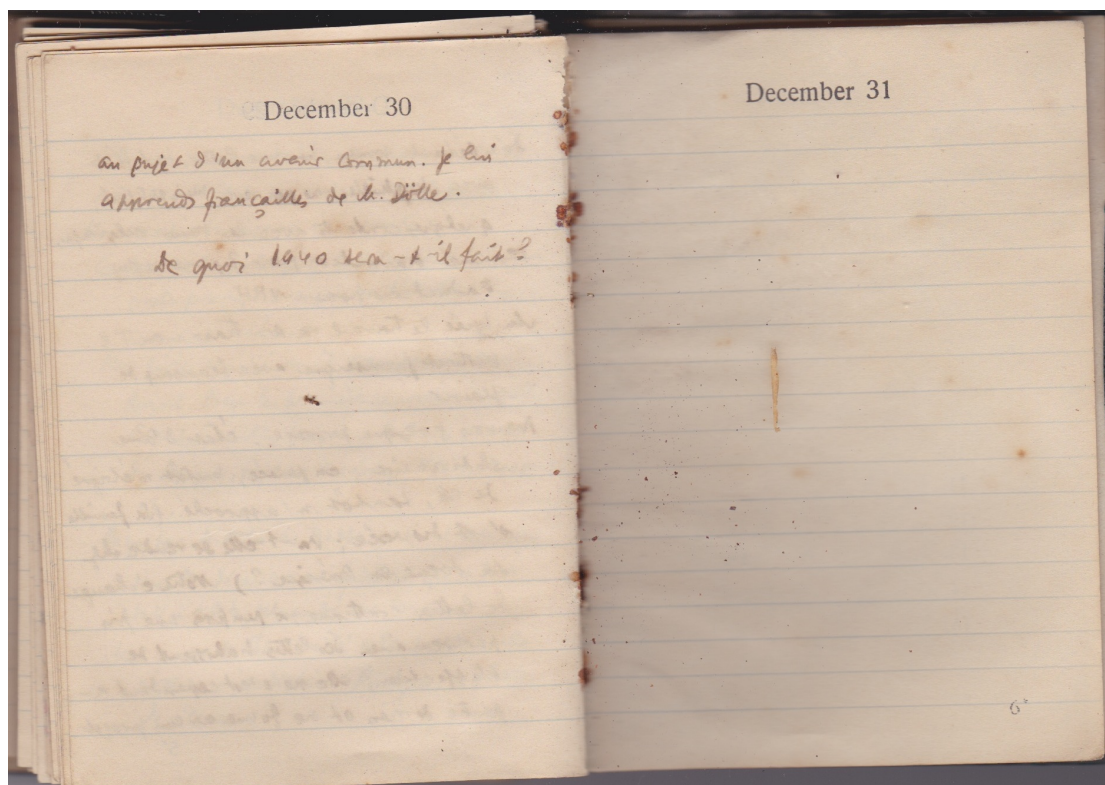 December 30
au sujet d'un avenir commun. Je lui
apprends françailles de M. Dölle.
De quoi 1940 sera-t-il fait?
December 31
6